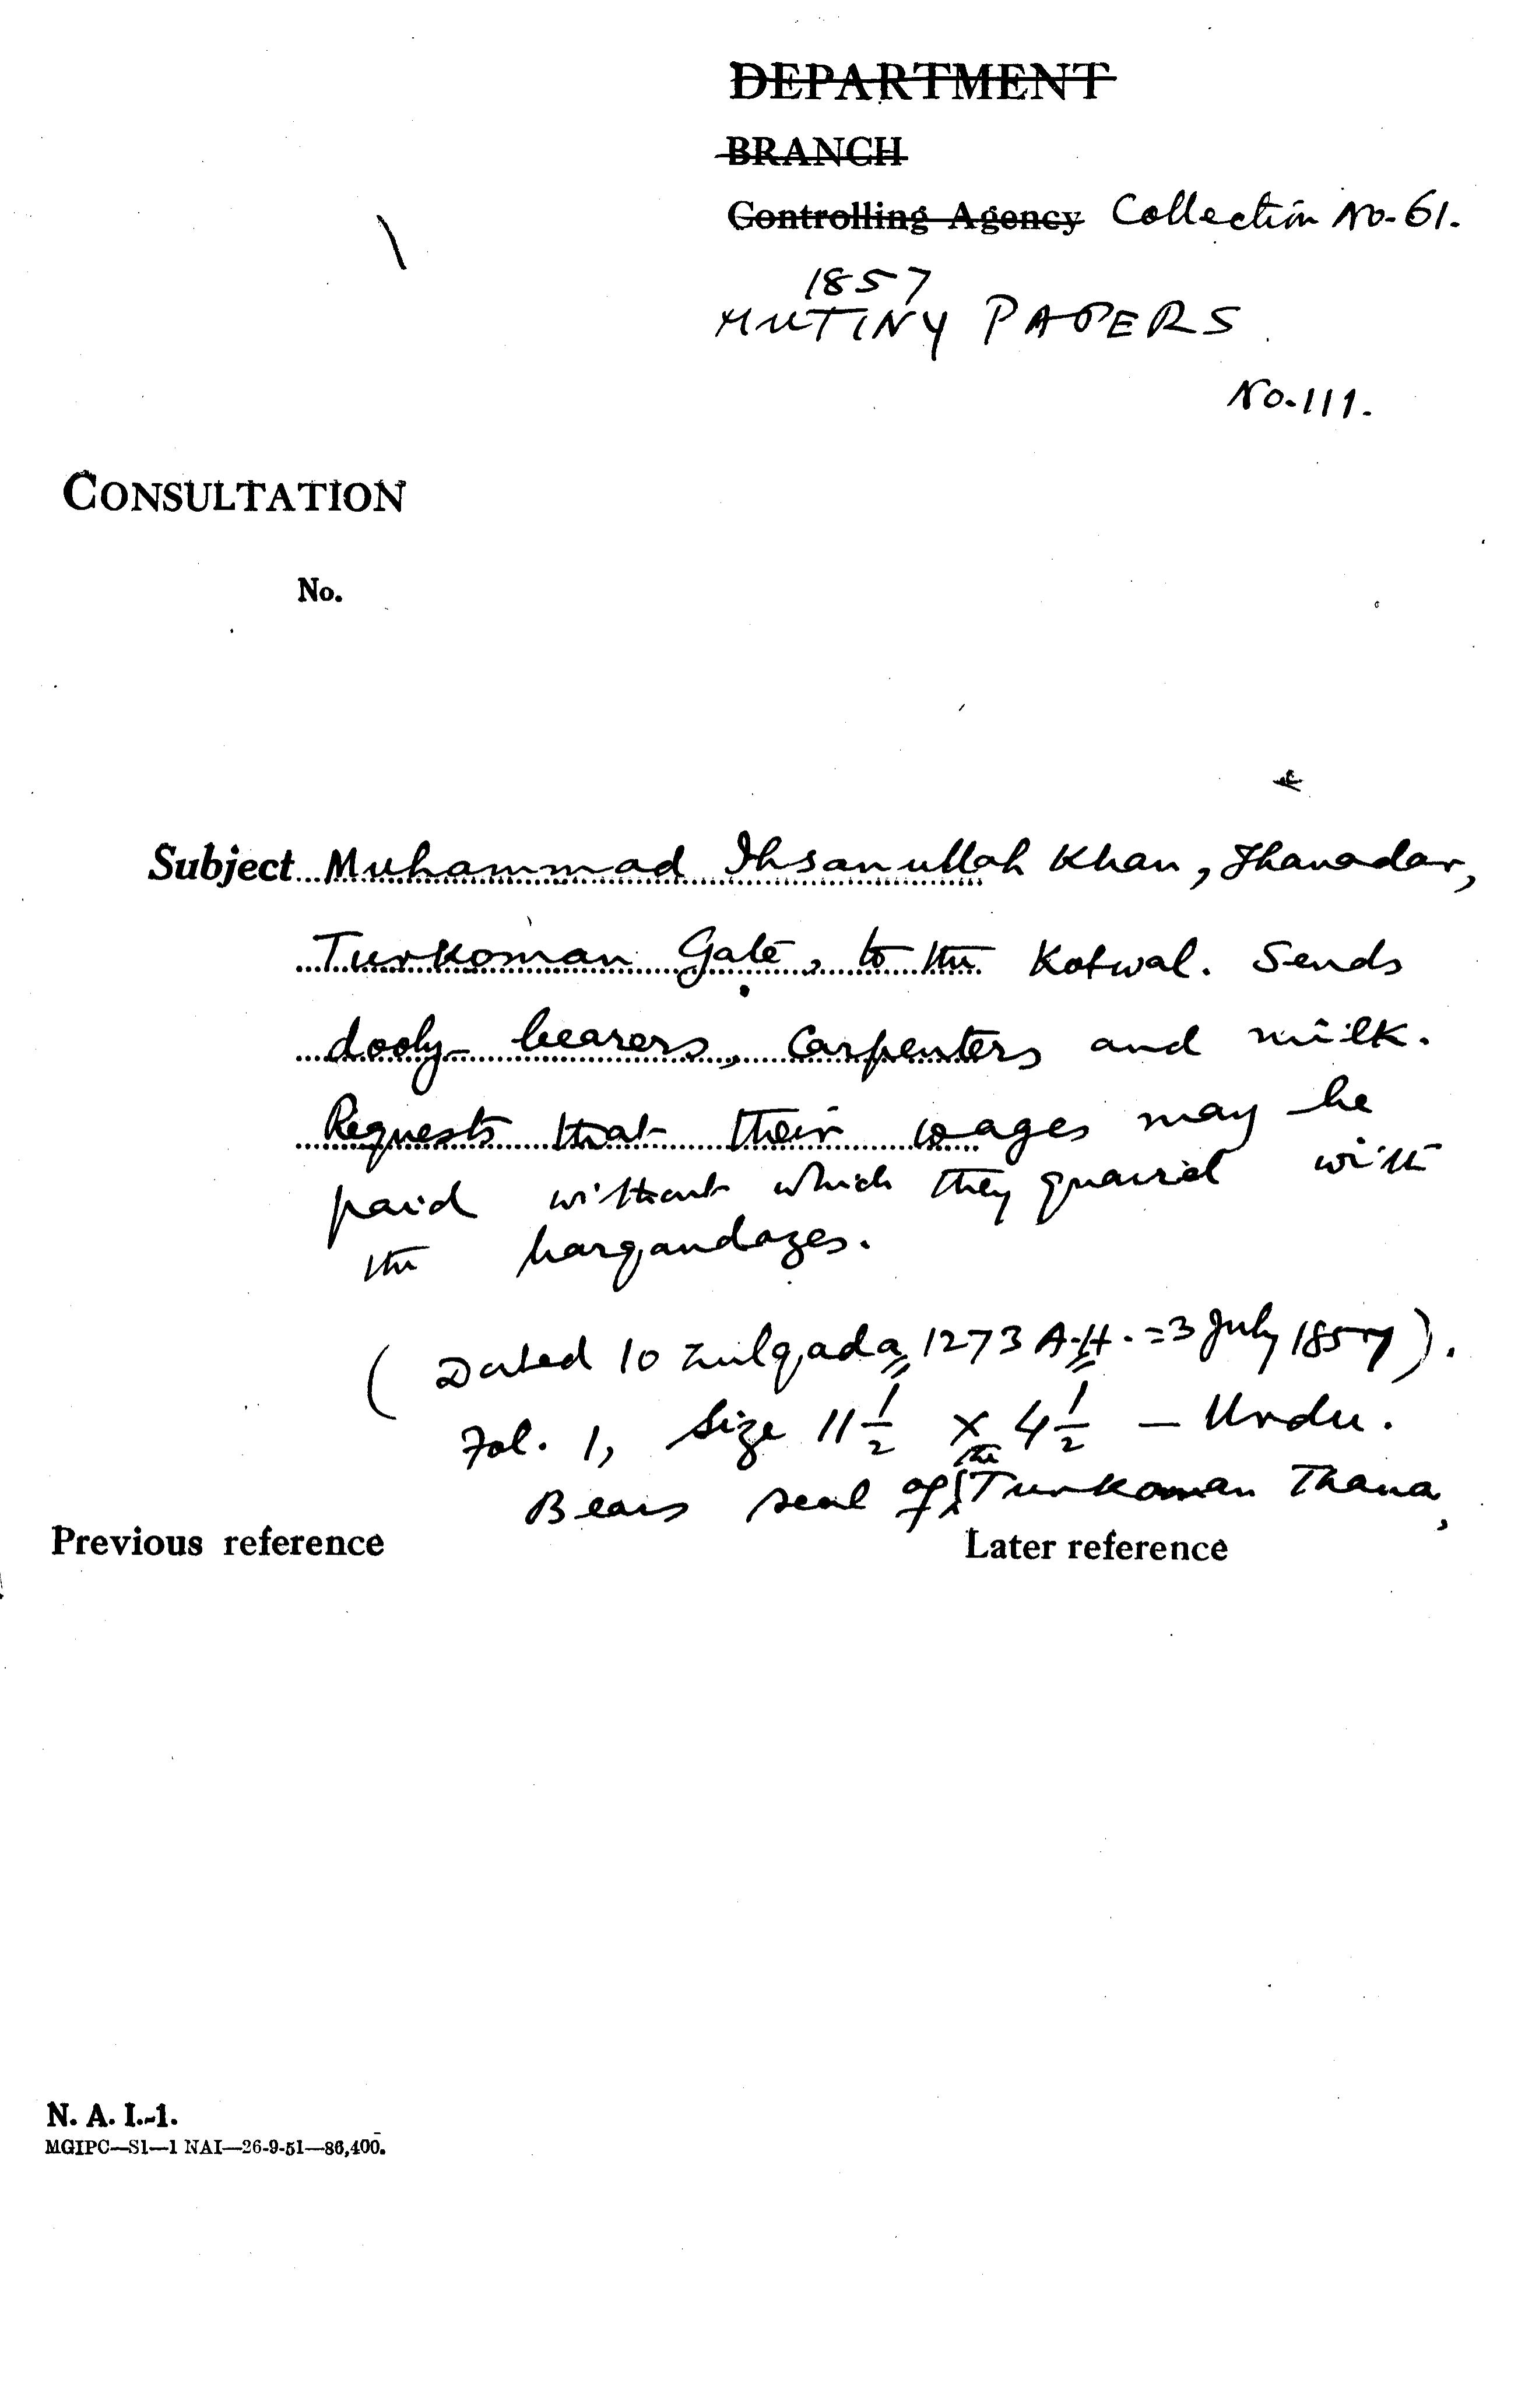 DEPARTMENT
BRANCH
Controlling Agency Collection No. 61.
1857
MUTINY PAPERS
No. 111.
CONSULTATION
No.
Subject Muhammad Ihsanullah Khan, Thanadar,
Turkoman Gate, to the Kotwal. Sends
dooly-bearers, Carpenters and milk.
Requests that their wages may be
paid without which they quarrel with
the barqandazes.
(Dated 10 Zulqada, 1273 A.H. = 3 July 1857).
Fol. 1, Size 11 1/2 × 4 1/2 – Urdu.
Bears seal of the Turkoman Thana,
Previous reference Later reference
N. A. I.-1.
MGIPC—S1—1 NAI—26-9-51—86,400.